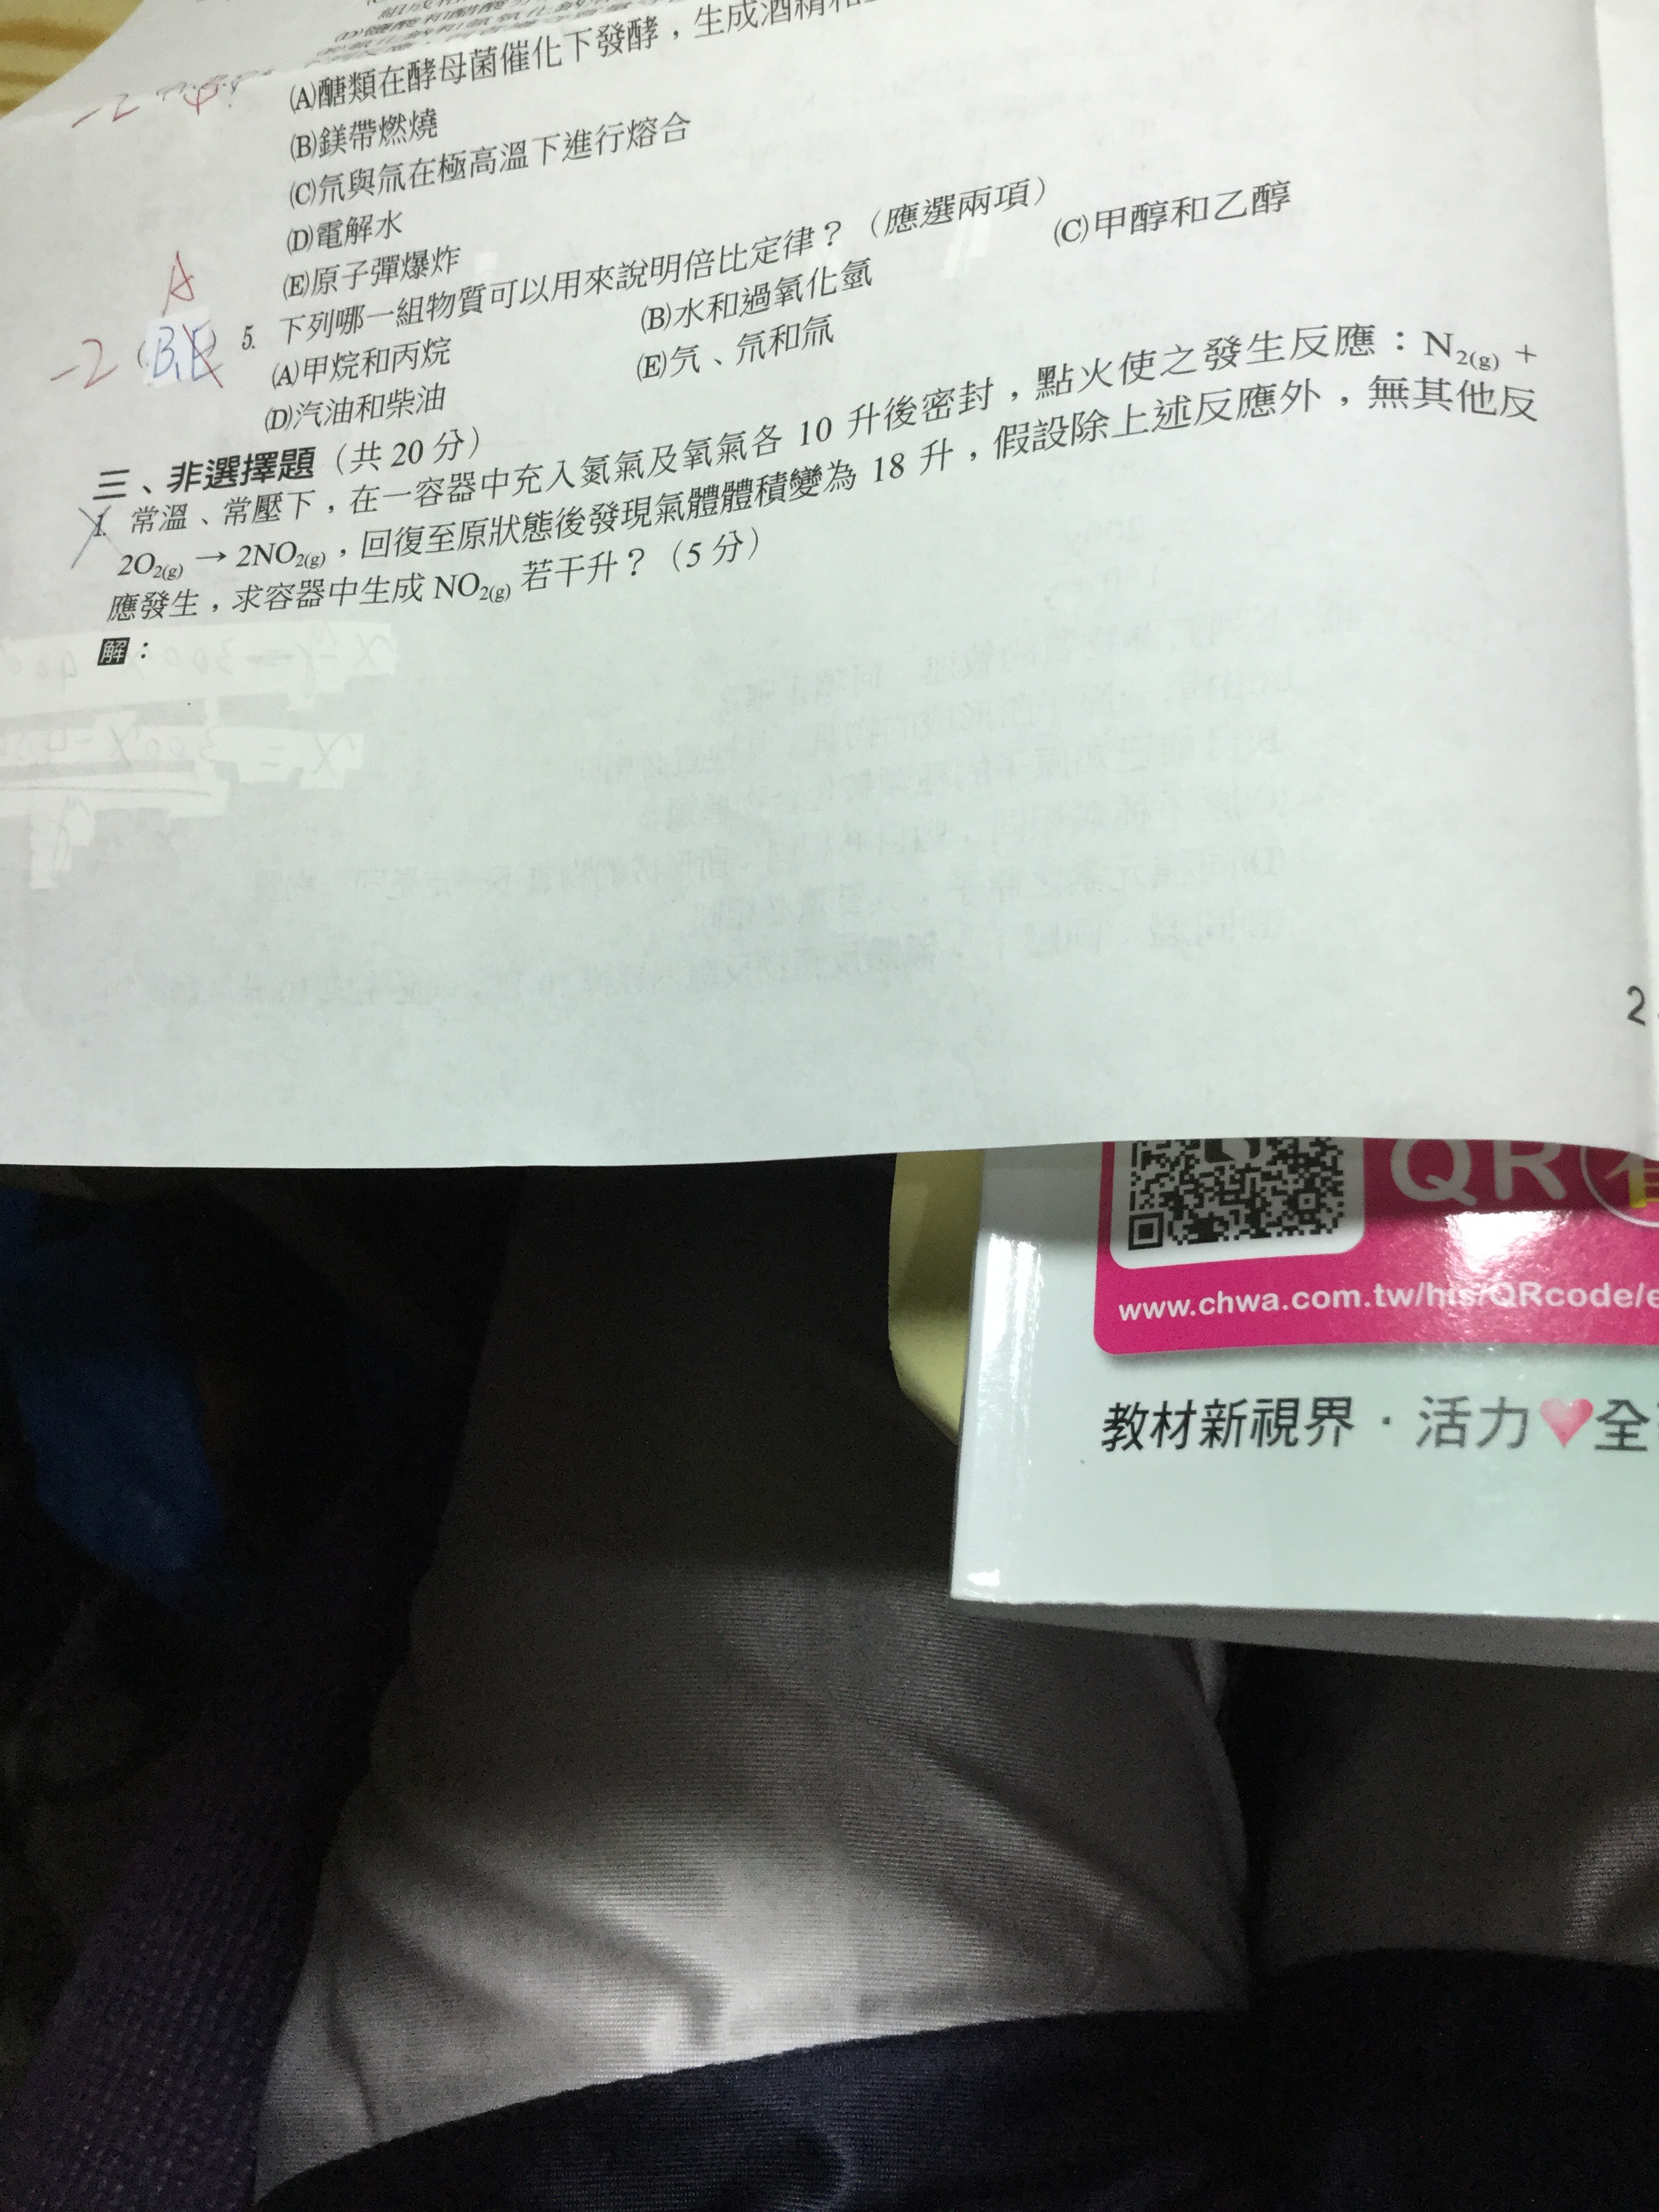 (A)醣類在酵母菌催化下發酵，生成酒精和
-2
(B)鎂帶燃燒
(C)氘與氚在極高溫下進行熔合
(D)電解水
(E)原子彈爆炸
A
-2 (B,E) 5. 下列哪一組物質可以用來說明倍比定律？（應選兩項）
(A)甲烷和丙烷 (B)水和過氧化氫 (C)甲醇和乙醇
(D)汽油和柴油 (E)氕、氘和氚
三、非選擇題（共 20 分）
1. 常溫、常壓下，在一容器中充入氮氣及氧氣各 10 升後密封，點火使之發生反應：N2(g) +
2O2(g) → 2NO2(g)，回復至原狀態後發現氣體體積變為 18 升，假設除上述反應外，無其他反
應發生，求容器中生成 NO2(g) 若干升？（5 分）
解：
2
QR
www.chwa.com.tw/his/QRcode/e
教材新視界．活力♥全